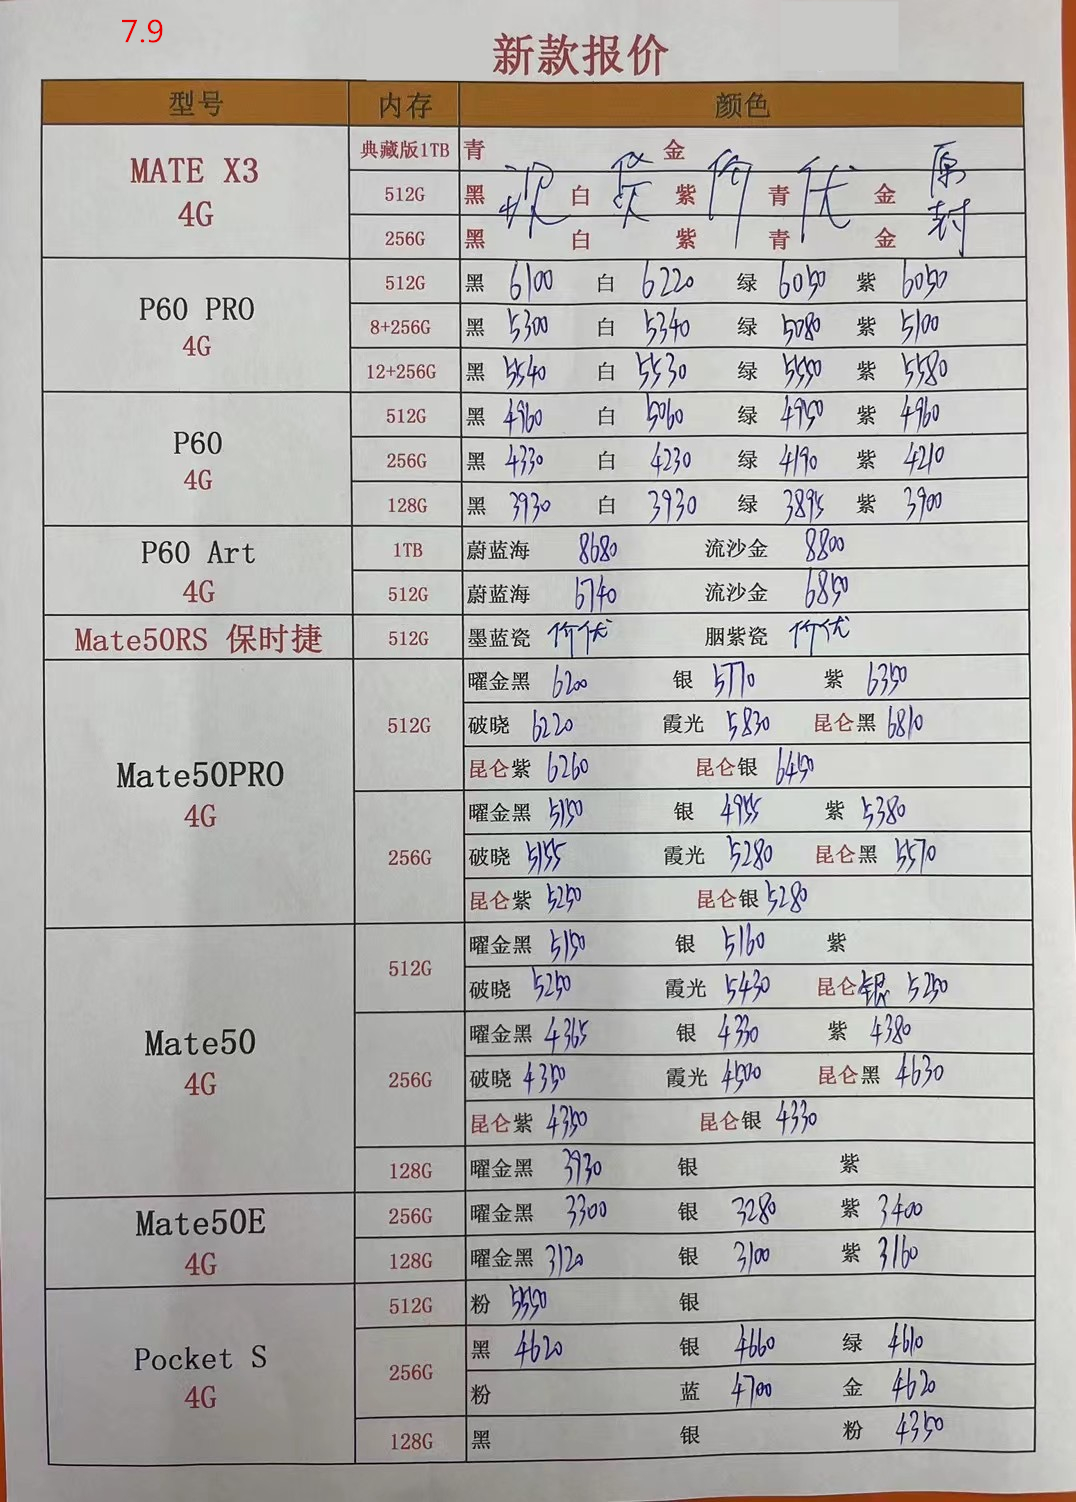 7.9
新款报价
型号 内存 颜色
MATE X3 4G
典藏版1TB 青 金
512G 黑 白 紫 青 金
256G 黑 白 紫 青 金
现货价优 原封
P60 PRO 4G
512G 黑 6100 白 6220 绿 6050 紫 6050
8+256G 黑 5300 白 5340 绿 5080 紫 5100
12+256G 黑 5540 白 5530 绿 5550 紫 5580
P60 4G
512G 黑 4960 白 5060 绿 4950 紫 4960
256G 黑 4330 白 4230 绿 4190 紫 4210
128G 黑 3930 白 3930 绿 3895 紫 3900
P60 Art 4G
1TB 蔚蓝海 8680 流沙金 8800
512G 蔚蓝海 6740 流沙金 6850
Mate50RS 保时捷 512G 墨蓝瓷 价优 胭紫瓷 价优
Mate50PRO 4G
512G 曜金黑 6200 银 5770 紫 6350
破晓 6220 霞光 5830 昆仑黑 6810
昆仑紫 6260 昆仑银 6450
256G 曜金黑 5150 银 4955 紫 5380
破晓 5155 霞光 5280 昆仑黑 5570
昆仑紫 5250 昆仑银 5280
Mate50 4G
512G 曜金黑 5150 银 5160 紫
破晓 5250 霞光 5430 昆仑银 5250
256G 曜金黑 4365 银 4330 紫 4380
破晓 4350 霞光 4500 昆仑黑 4630
昆仑紫 4350 昆仑银 4330
128G 曜金黑 3930 银 紫
Mate50E 4G
256G 曜金黑 3300 银 3280 紫 3400
128G 曜金黑 3120 银 3100 紫 3160
Pocket S 4G
512G 粉 5550 银
256G 黑 4620 银 4660 绿 4610
粉 蓝 4700 金 4620
128G 黑 银 粉 4350